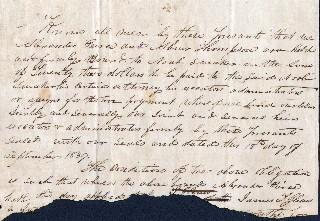 Know all men by these Presents that we
Alexander Pierce and Arthur Thompson are held
and firmly bound to Noah in the Sum
of Seventy two dollars to be paid to the said Noah
his certain attorney his executors administrators
or assigns for the true payment whereof we bind ourselves
Jointly and severally our and our heirs
executors & administrators firmly by these Presents
Sealed with our Seals and dated this 18th day of
September 1837.
The Condition of the above Obligation
is such that whereas the above Alexander Pierce
hath this day James